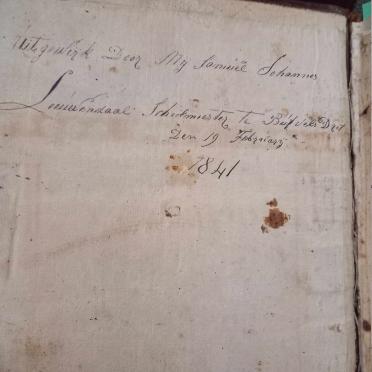 Uitgewerk Door My Samuel Johannes
Leeuwendaal Schoolmeester te
Den 19 February
1841